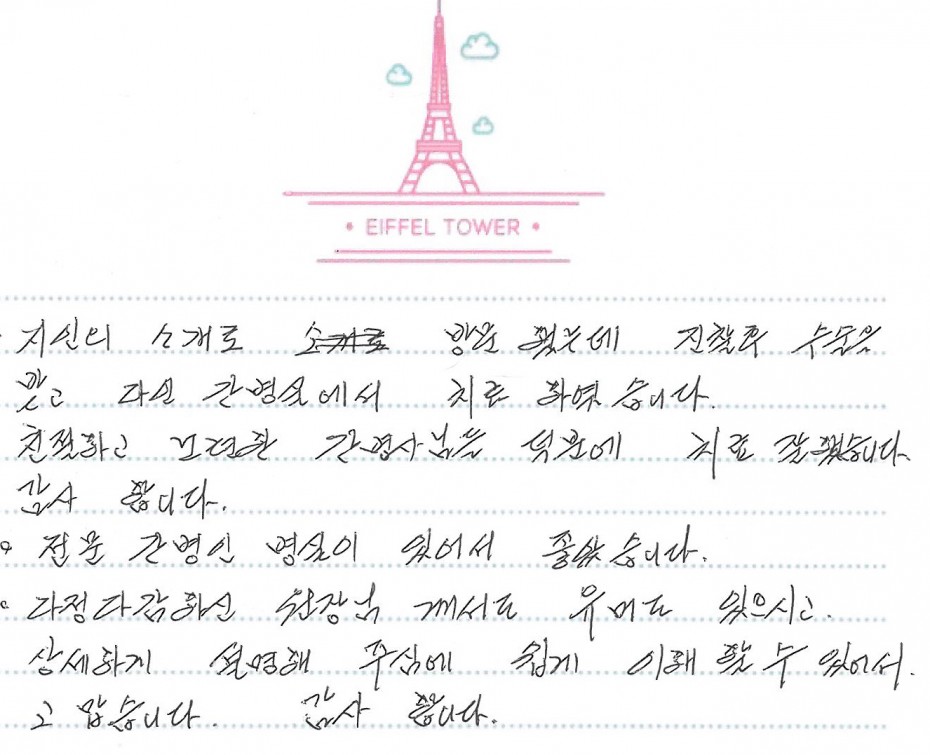 • EIFFEL TOWER •
지인의 소개로 소개로 방문 했는데 진찰후 수술을
받고 다인 간병실에서 치료 하였습니다.
친절하고 노련한 간병사님들 덕분에 치료 잘했습니다.
감사 합니다.
o 전문 간병인 병실이 있어서 좋았습니다.
o 다정다감하신 원장님 께서도 유머도 있으시고.
상세하게 설명해 주심에 쉽게 이해 할 수 있어서.
고맙습니다. 감사 합니다.